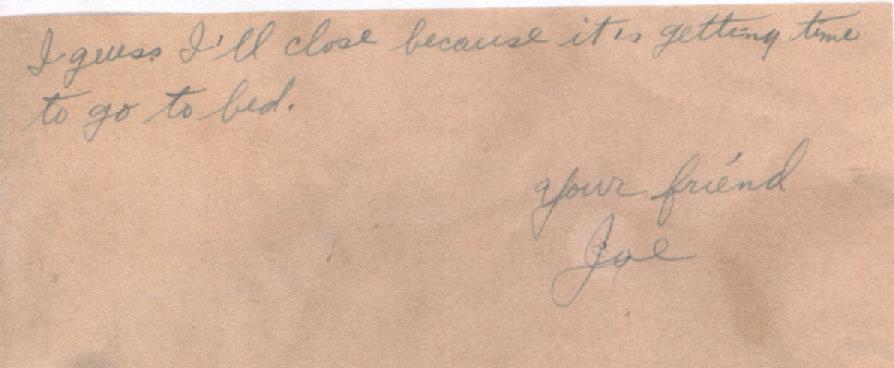 I guess I'll close because it is getting time
to go to bed.
Your friend
Joe